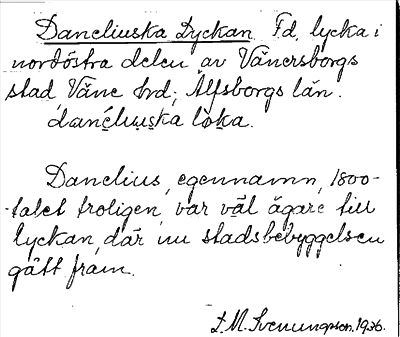 Daneliuska Lyckan. Fd. lycka i
nordöstra delen av Vänersborgs
stad, Väne hrd; Älfsborgs län.
danéliuska løka.
Danelius, egennamn, 1800-
-talet troligen, var väl ägare till
lyckan, där nu stadsbebyggelsen
gått fram.
L. M. Svenungsson. 1936.